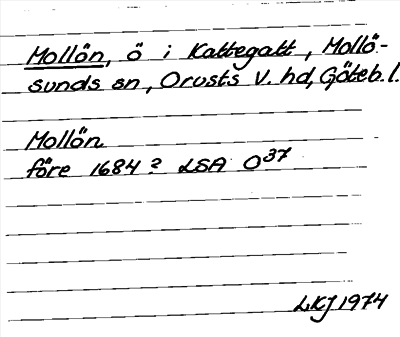 Mollön, ö i Kattegatt, Mollö-
sunds sn, Orusts V. hd, Göteb. l.
Mollön
före 1684? LSA O37
LKJ 1974